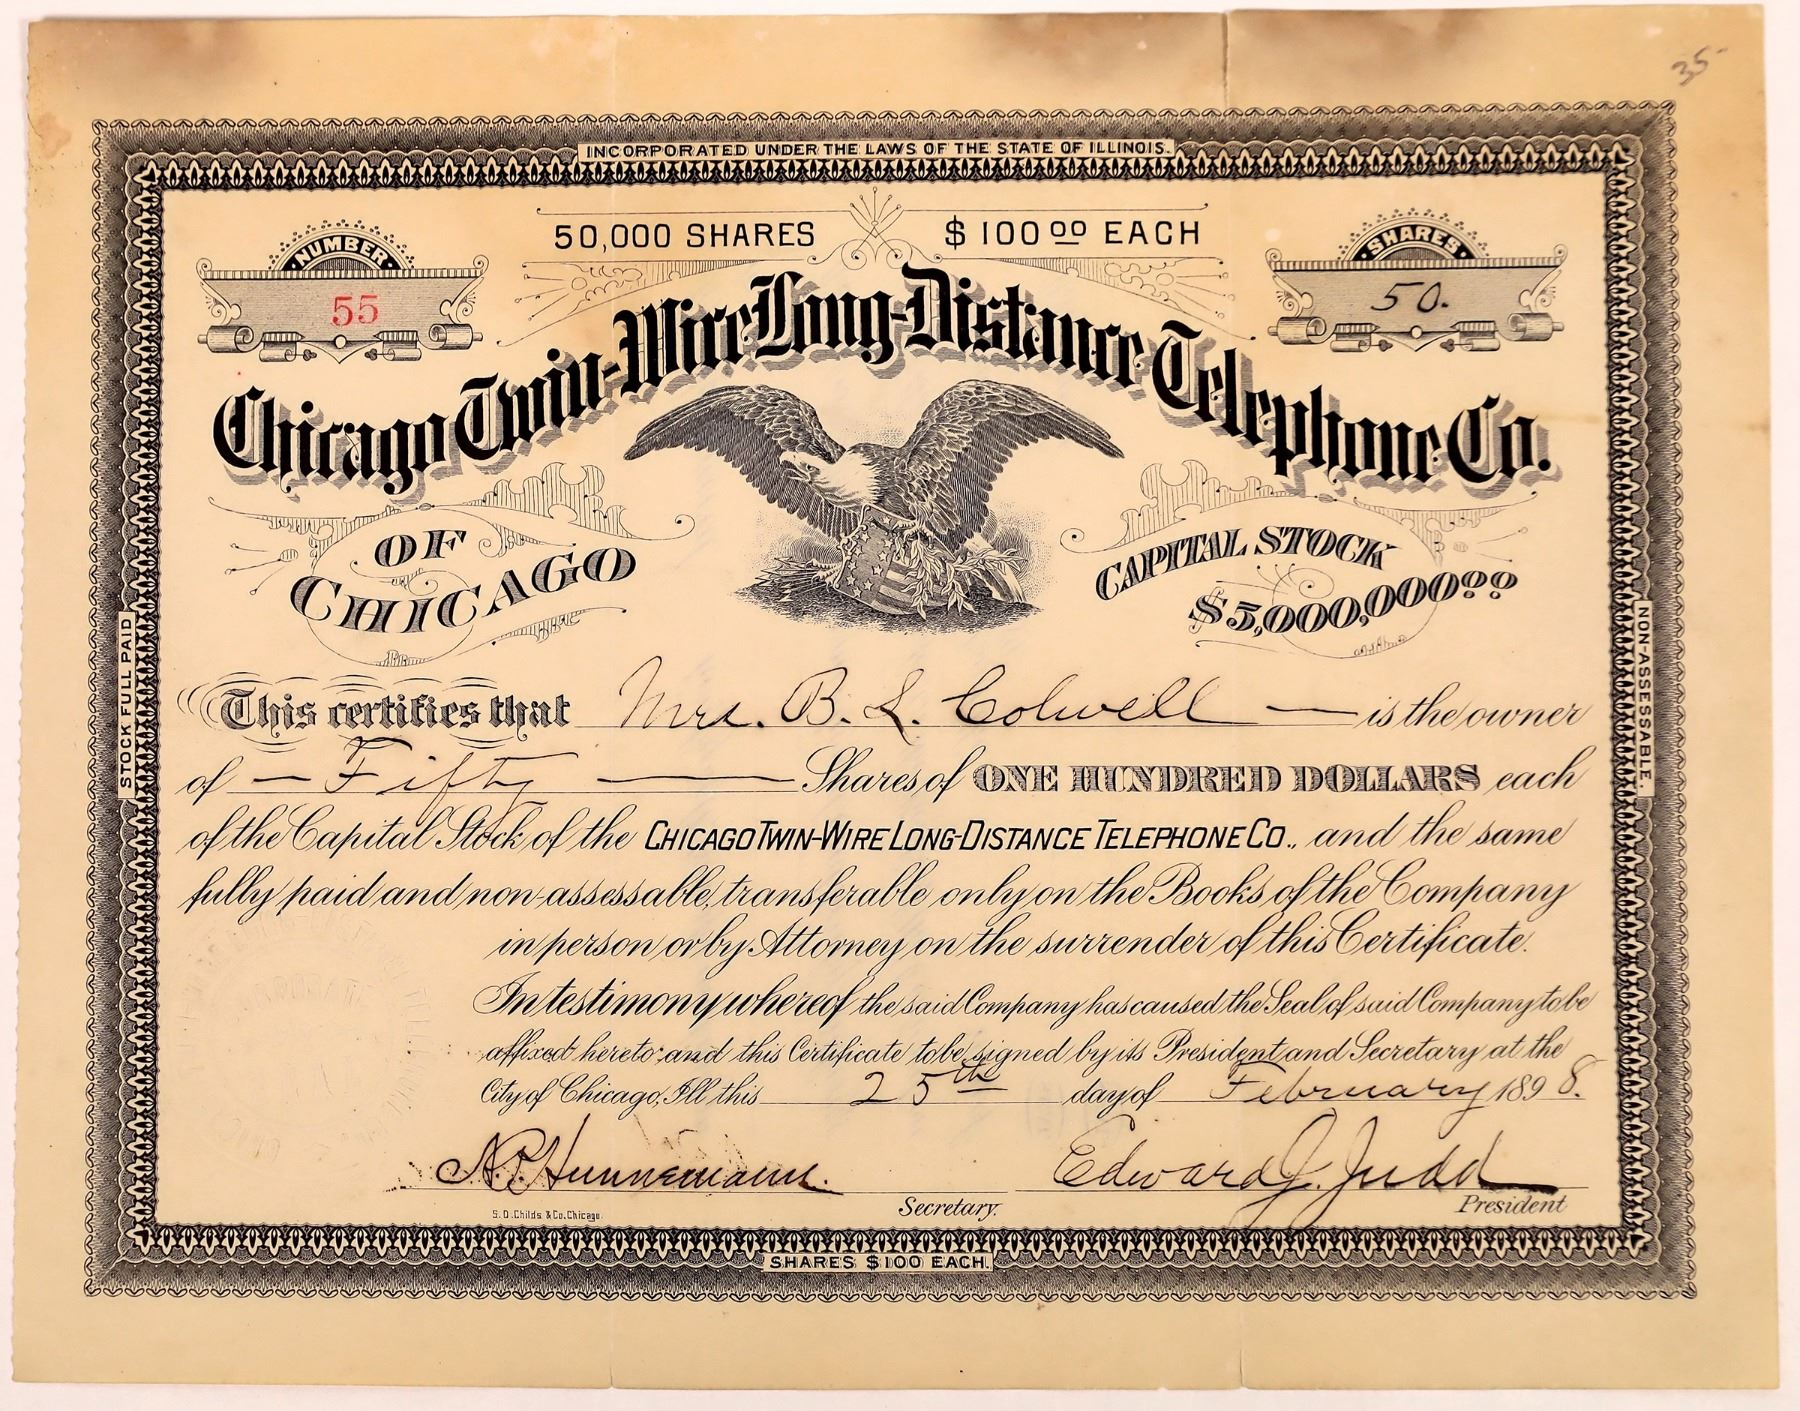 35-
INCORPORATED UNDER THE LAWS OF THE STATE OF ILLINOIS.
50,000 SHARES $100 00 EACH
NUMBER
55
SHARES
50.
Chicago Twin-Wire Long-Distance Telephone Co.
OF CHICAGO
CAPITAL STOCK
$5,000,000 00
STOCK FULL PAID
NON-ASSESSABLE.
This certifies that Mrs. B. L. Colwell — is the owner
of — Fifty — Shares of ONE HUNDRED DOLLARS each
of the Capital Stock of the CHICAGO TWIN-WIRE LONG-DISTANCE TELEPHONE CO., and the same
fully paid and non-assessable, transferable only on the Books of the Company
in person or by Attorney on the surrender of this Certificate.
In testimony whereof the said Company has caused the Seal of said Company to be
affixed hereto and this Certificate to be signed by its President and Secretary at the
City of Chicago, Ill this 25th day of February 1898.
Hunnemann.
Edward J. Judd
Secretary.
President
S. D. Childs & Co. Chicago.
SHARES $100 EACH.